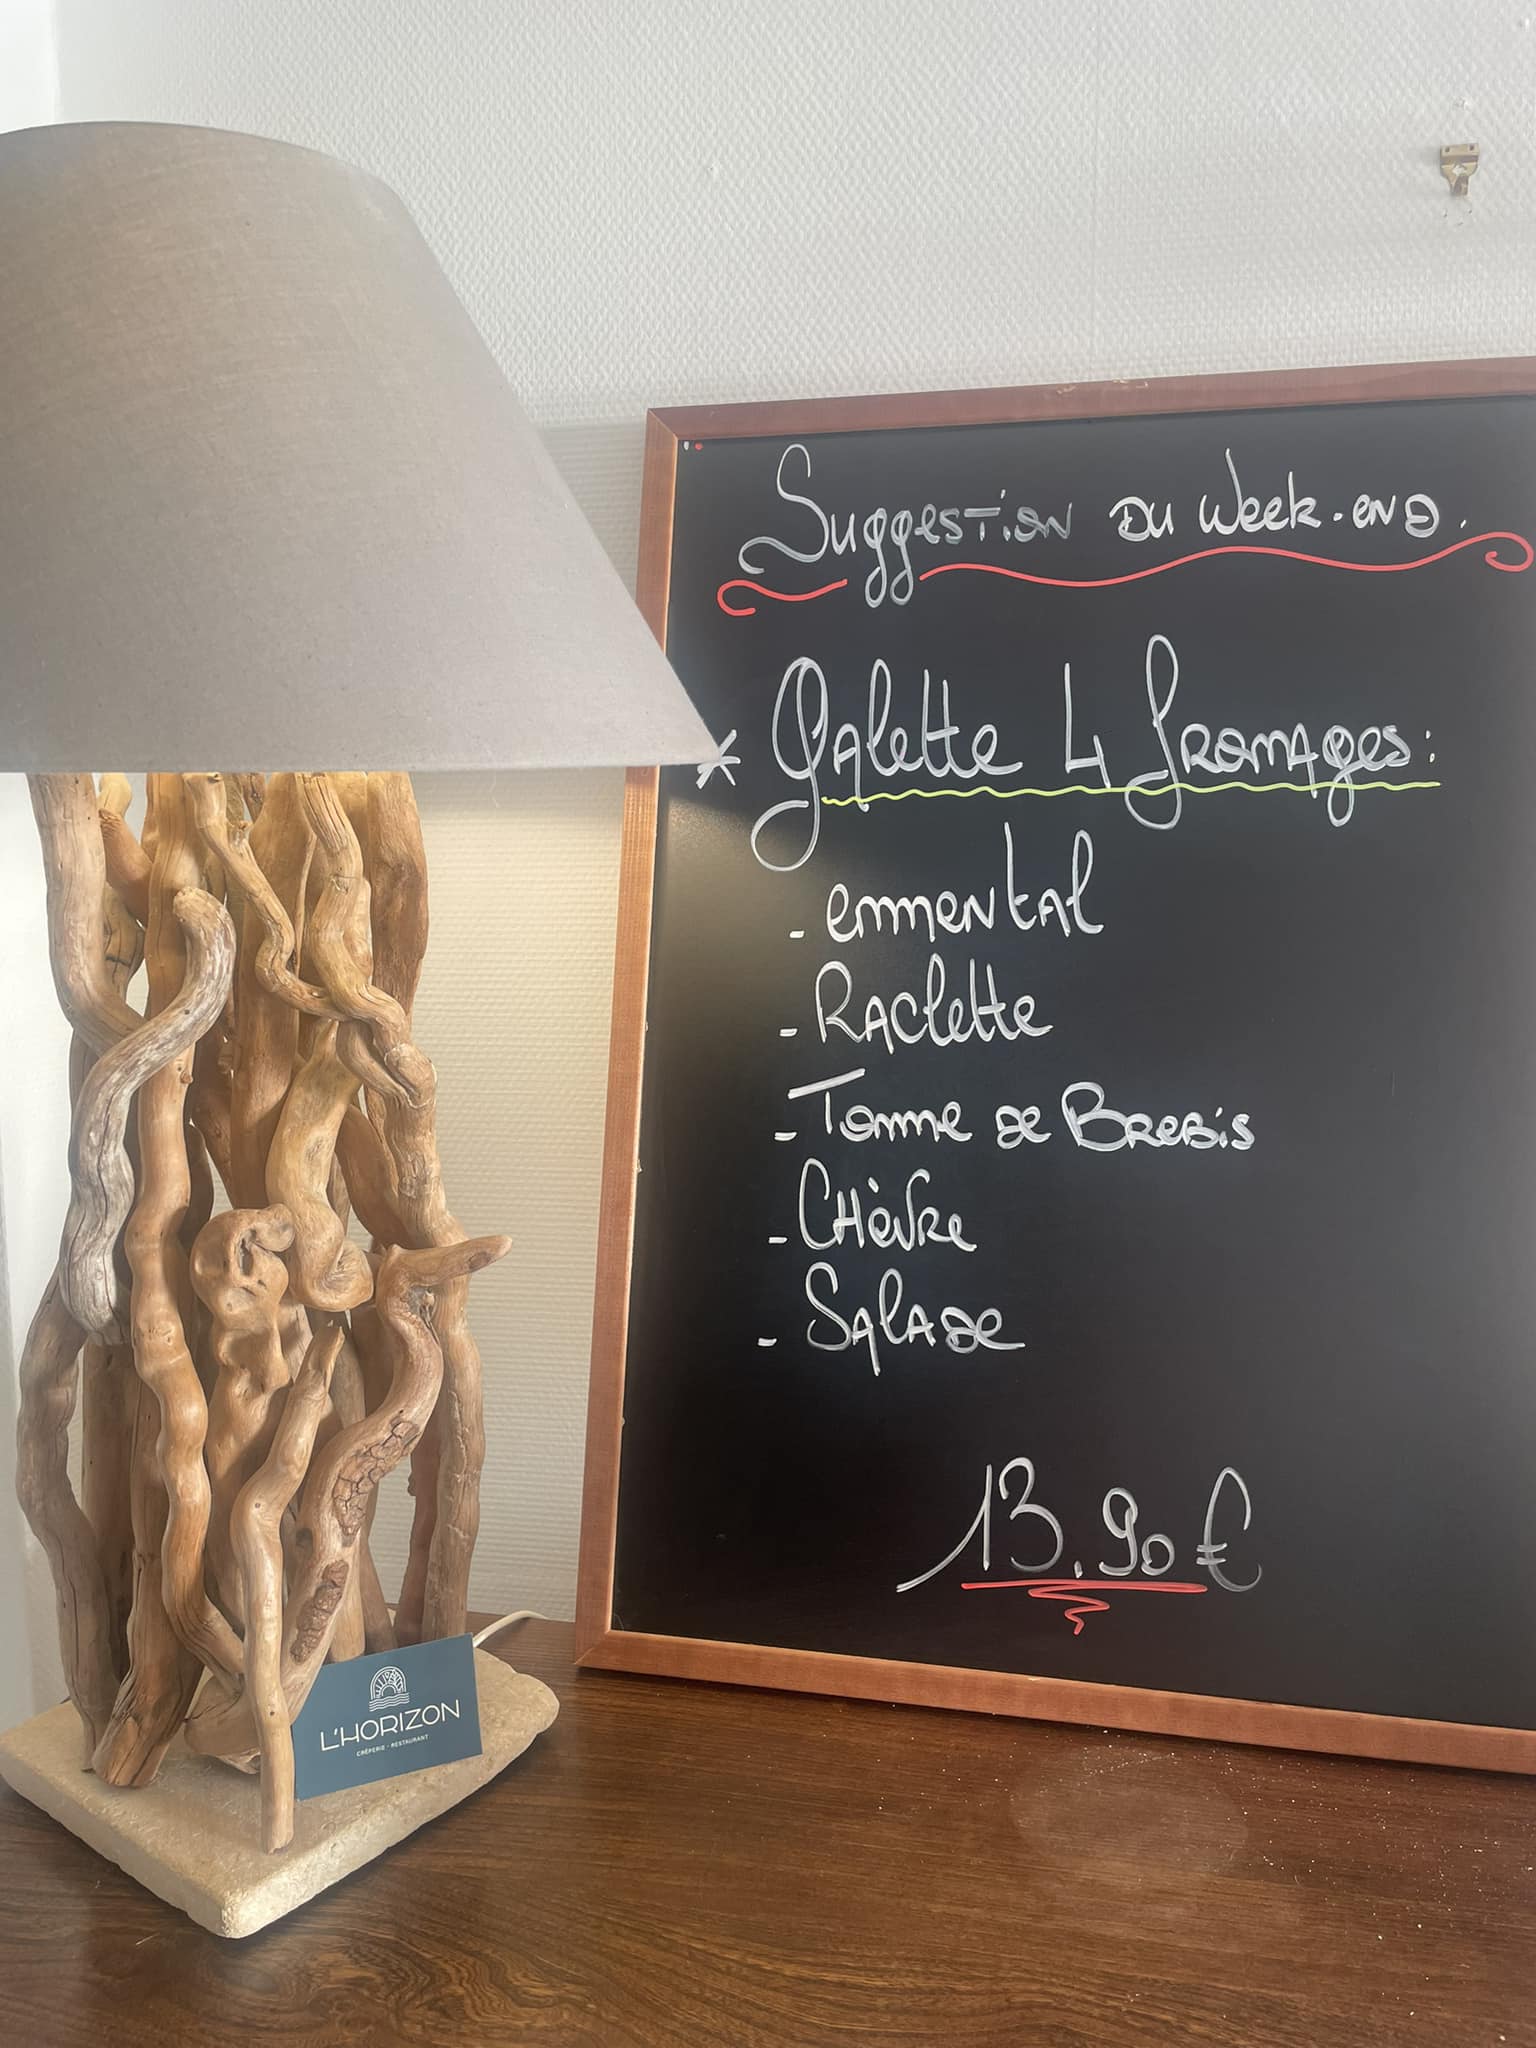 Suggestion du week-end.
* Galette 4 fromages :
- emmental
- Raclette
- Tomme de Brebis
- Chèvre
- Salade
13.90€
L'HORIZON
CRÊPERIE - RESTAURANT